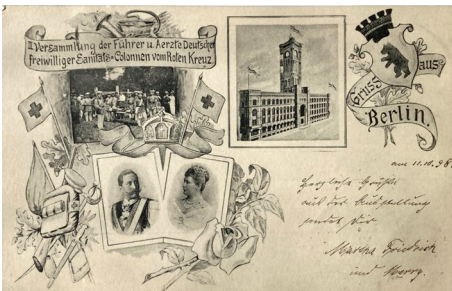 II Versammlung der Führer u. Aerzte Deutscher
freiwilliger Sanitäts-Colonnen vom Roten Kreuz.
Gruss
aus
Berlin.
am 11.10.98.
Herzliche Grüße
aus der Ausstellung
sendet Dir
Martha Friedrich
und